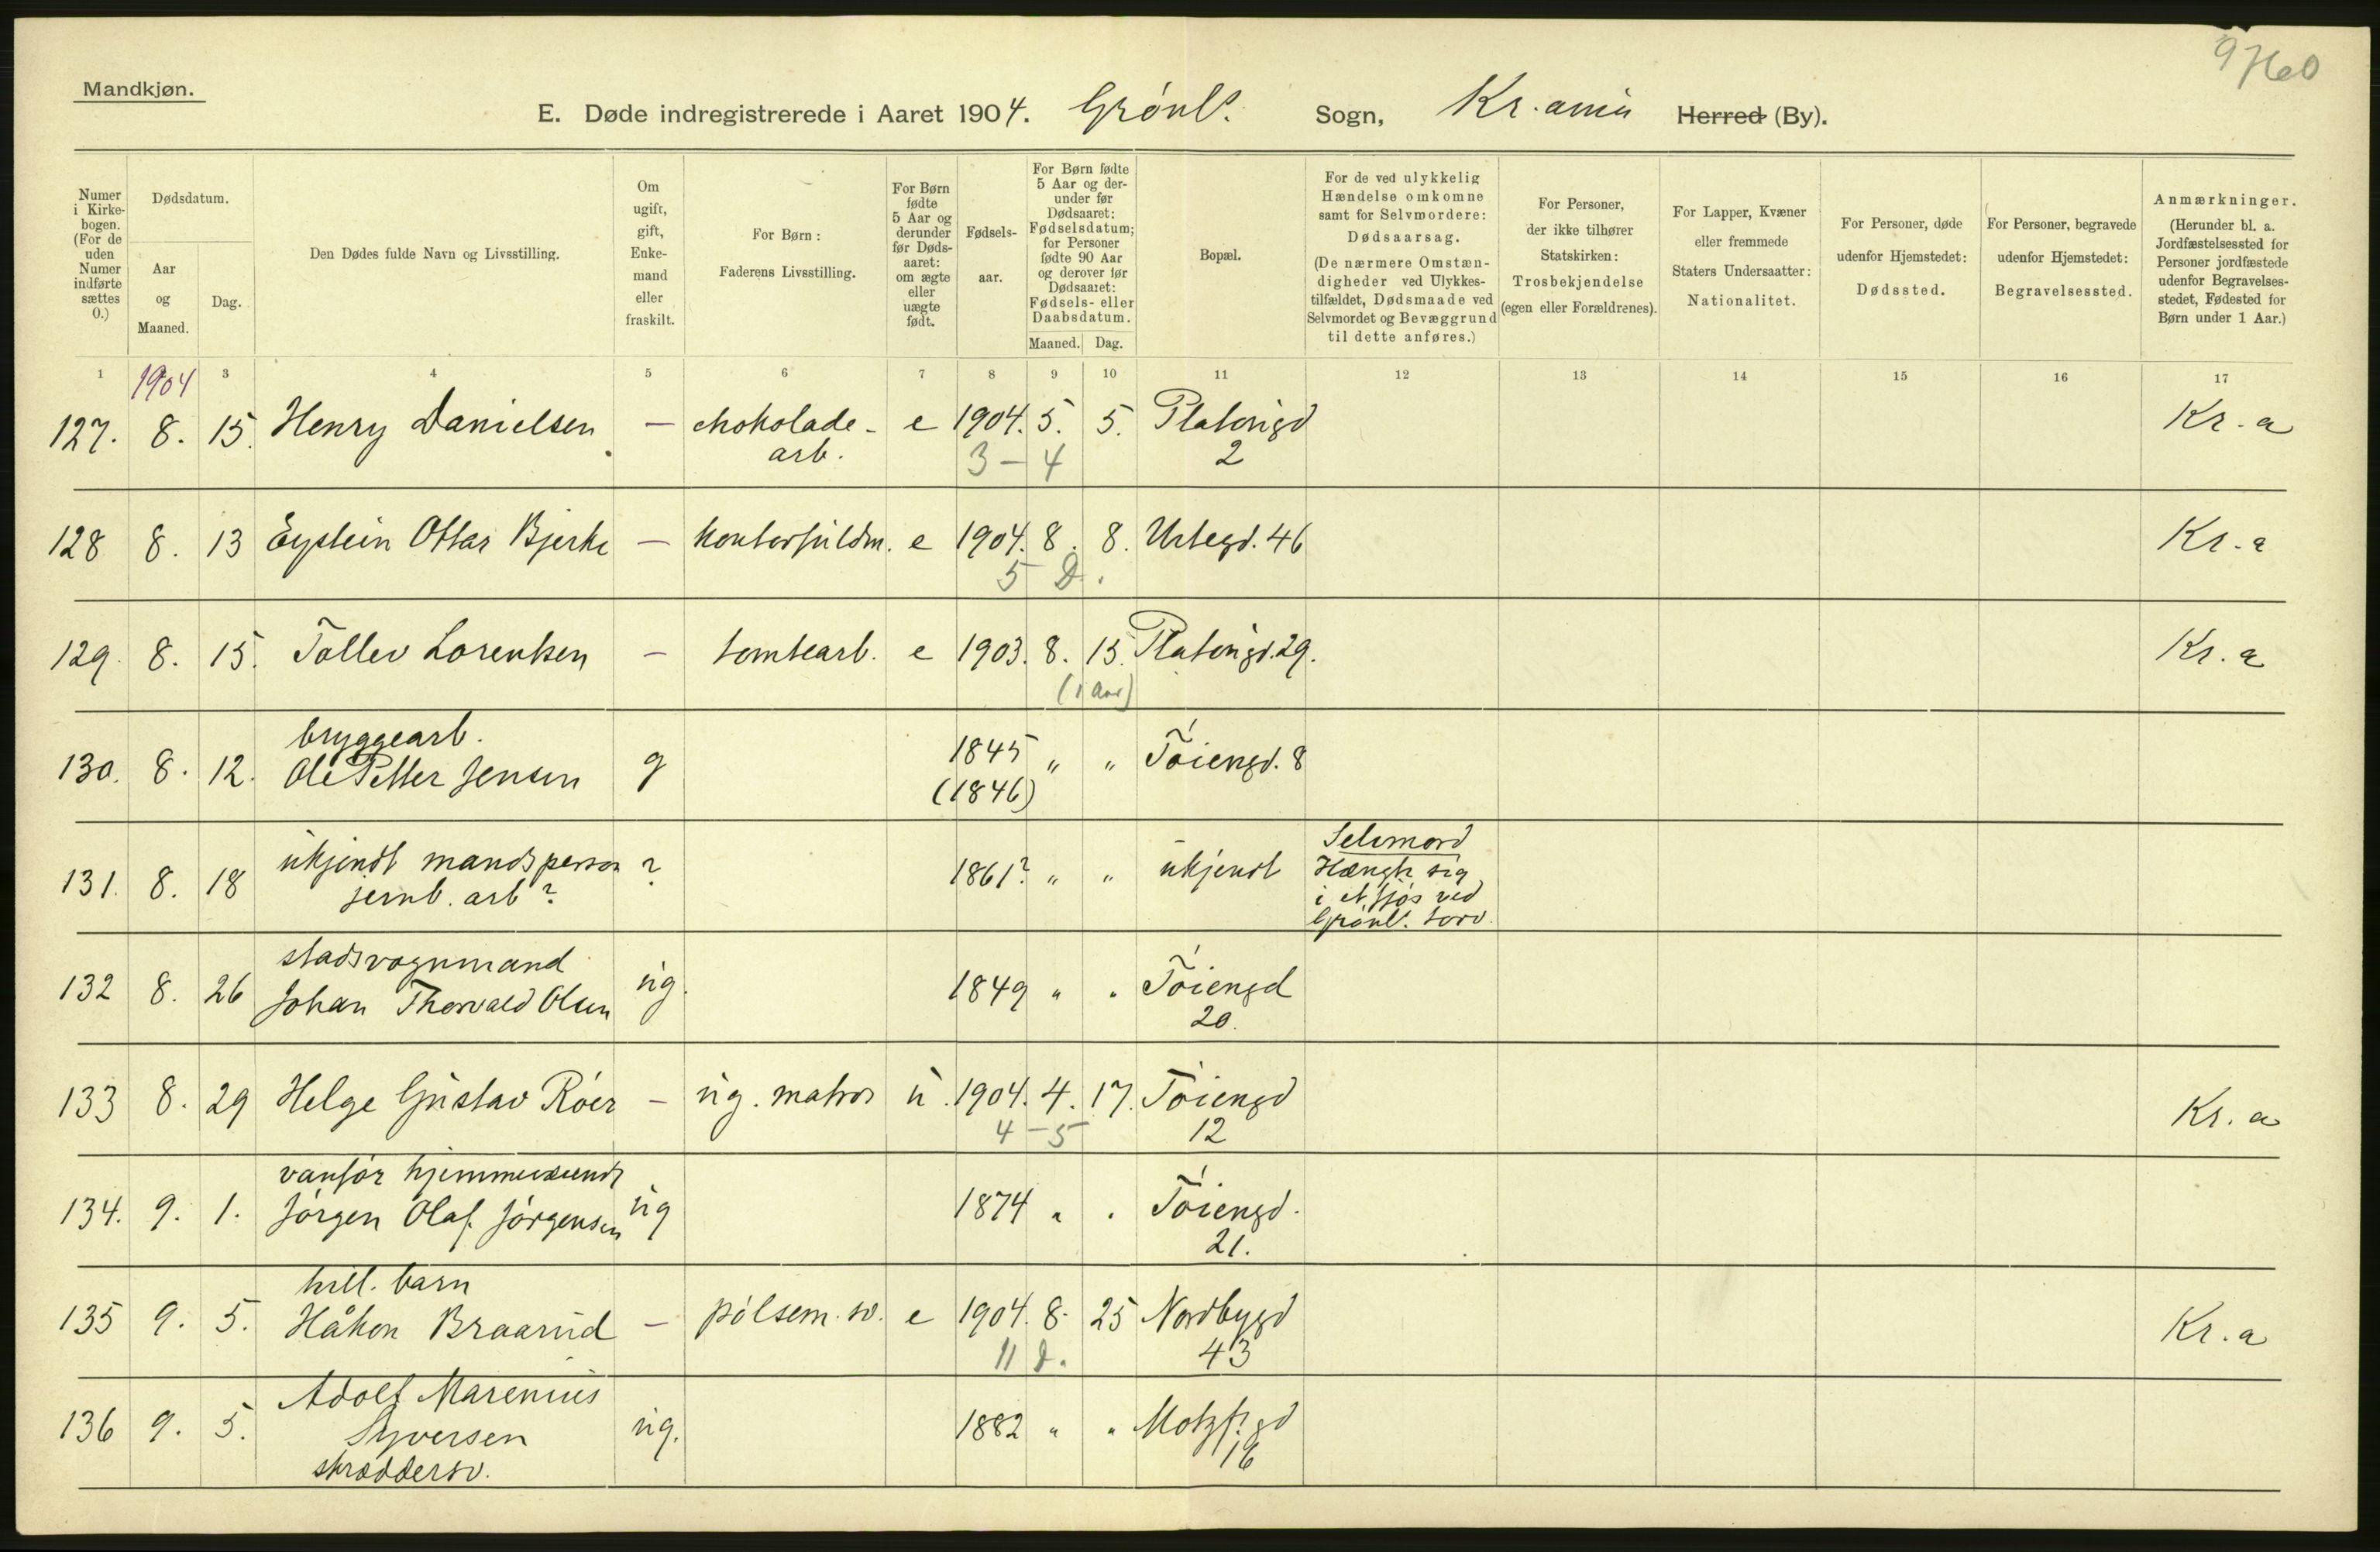 9760
Mandkjøn.
E. Døde indregistrerede i Aaret 1904. Grönl. Sogn, Kr.ania Herred (By).
Numer i Kirke-bogen. (For de uden Numer indførte sættes 0.)
Dødsdatum.
Aar og Maaned.
Dag.
Den Dødes fulde Navn og Livsstilling.
Om ugift, gift, Enke-mand eller fraskilt.
For Børn: Faderens Livsstilling.
For Børn fødte 5 Aar og derunder før Døds-aaret: om ægte eller uægte født.
Fødsels-aar.
For Børn fødte 5 Aar og der-under før Dødsaaret: Fødselsdatum; for Personer fødte 90 Aar og derover før Dødsaaret: Fødsels- eller Daabsdatum.
Maaned. Dag.
Bopæl.
For de ved ulykkelig Hændelse omkomne samt for Selvmordere: Dødsaarsag. (De nærmere Omstæn-digheder ved Ulykkes-tilfældet, Dødsmaade ved Selvmordet og Bevæggrund til dette anføres.)
For Personer, der ikke tilhører Statskirken: Trosbekjendelse (egen eller Forældrenes).
For Lapper, Kvæner eller fremmede Staters Undersaatter: Nationalitet.
For Personer, døde udenfor Hjemstedet: Dødssted.
For Personer, begravede udenfor Hjemstedet: Begravelsessted.
Anmærkninger. (Herunder bl. a. Jordfæstelsessted for Personer jordfæstede udenfor Begravelses-stedet, Fødested for Børn under 1 Aar.)
1 3 4 5 6 7 8 9 10 11 12 13 14 15 16 17
1904
127. 8. 15. Henry Danielsen — chokolade- e 1904. 5. 5. Platongd Kr.a
arb. 3 — 4 2
128 8. 13 Eystein Ottar Bjerke — kontorfuldm. e 1904. 8. 8. Urtegd. 46 Kr.a
5 D.
129. 8. 15. Tollev Lorentsen — tomtearb. e 1903. 8. 15. Platongd. 29. Kr.a
(1 Aar)
bryggearb.
130. 8. 12. Ole Petter Jensen g 1845 " " Töiengd. 8
(1846)
131. 8. 18 ukjendt mandsperson ? 1861? " " ukjendt Selvmord
jernb. arb? Hængte sig
i et fjös ved
Grönl. torv.
stadsvognmand
132 8. 26 Johan Thorvald Olsen ug. 1849 " " Töiengd
20.
133 8. 29 Helge Gustav Röer — ug. matros u. 1904. 4. 17. Töiengd Kr.a
4 — 5 12
vanför hjemmeværende
134. 9. 1. Jörgen Olaf Jörgensen ug 1874 " " Töiengd.
21.
tvill. barn
135 9. 5. Håkon Braarud — pölsem. sv. e 1904. 8. 25 Nordbygd Kr.a
11 D. 43
Adolf Marenius
136 9. 5. Syversen ug. 1882 " " Motzf. gd
skræddersv. 16